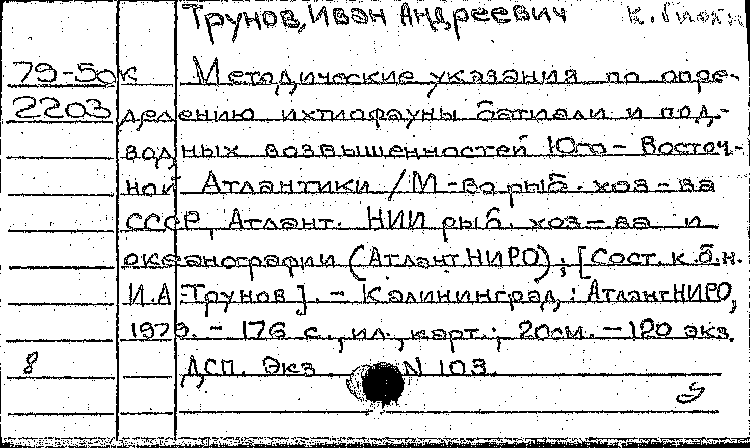 Трунов, Иван Андреевич
79-50к Методические указания по опре-
2203 делению ихтиофауны батиали и под-
водных возвышенностей Юго-Восточ-
ной Атлантики / М-во рыб. хоз-ва
СССР, Атлант. НИИ рыб. хоз-ва и
океанографии (АтлантНИРО); [Сост. к.б.н.
И.А. Трунов]. - Калининград,: АтлантНИРО,
1979. - 176 с., ил., карт.; 20см. - 120 экз.
8 ДСП. Экз. N 103.